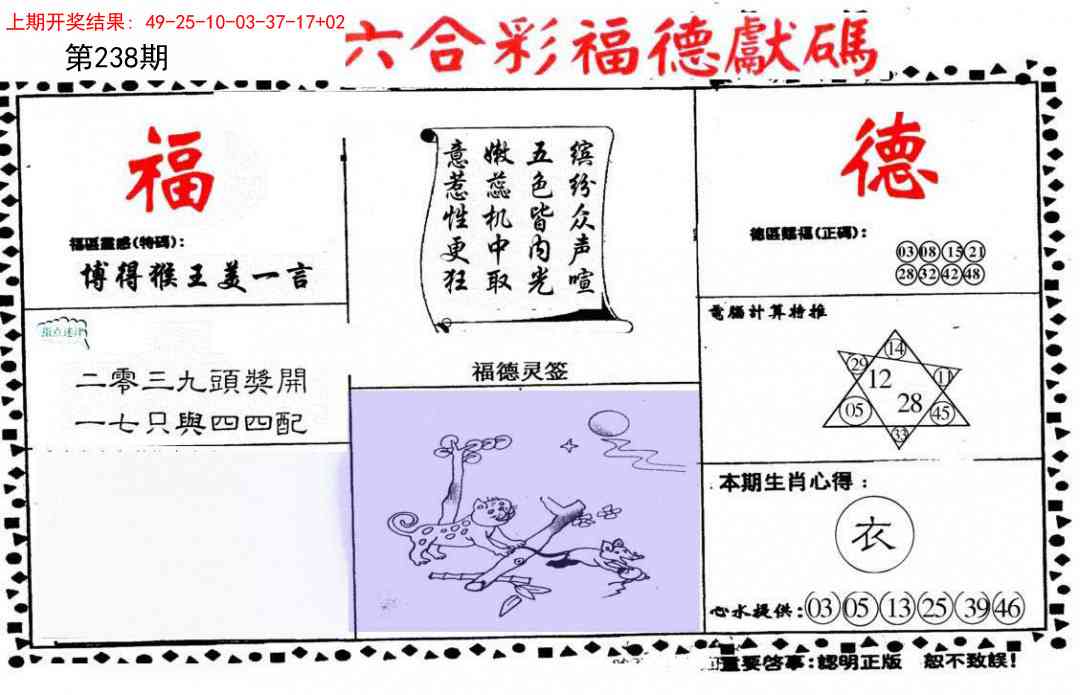 上期开奖结果: 49-25-10-03-37-17+02
第238期
六合彩福德獻碼
福
福區靈感(特碼):
博得猴王美一言
二零三九頭獎開
一七只與四四配
缤纷众声喧
五色皆内光
嫩蕊机中取
意惹性更狂
福德灵签
德
德區賜福(正碼):
03 08 15 21
28 32 42 48
電腦計算特推
14
29 12 11
05 28 45
33
本期生肖心得:
衣
心水提供: 03 05 13 25 39 46
重要啓事:認明正版 恕不致誤!